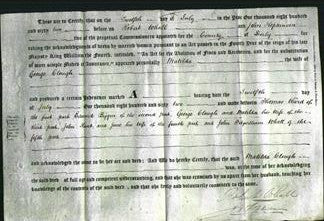 These are to Certify, that on the Twelfth day of July in the Year One thousand eight hundred
and sixty two before us Robert Whall and John Stephenson
two of the perpetual Commissioners appointed for the County of Derby for
taking the acknowledgments of deeds by married women pursuant to an Act passed in the Fourth Year of the reign of his late
Majesty King William the Fourth, intituled, "An Act for the Abolition of Fines and Recoveries, and for the substitution of
more simple Modes of Assurance," appeared personally Matilda the wife of
George Clough
and produced a certain Indenture marked A bearing date the Twelfth day
of July One thousand eight hundred and sixty two and made between Thomas Ward of
the first part of the second part, George Clough and Matilda his wife of the
third part, John and his wife of the fourth part and John of the
fifth part
and acknowledged the same to be her act and deed: And We do hereby Certify, that the said Matilda Clough
was, at the time of her acknowledging
the said deed, of full age and competent understanding, and that she was examined by us apart from her husband, touching
her knowledge of the contents of the said deed, and that she freely and voluntarily consented to the same.